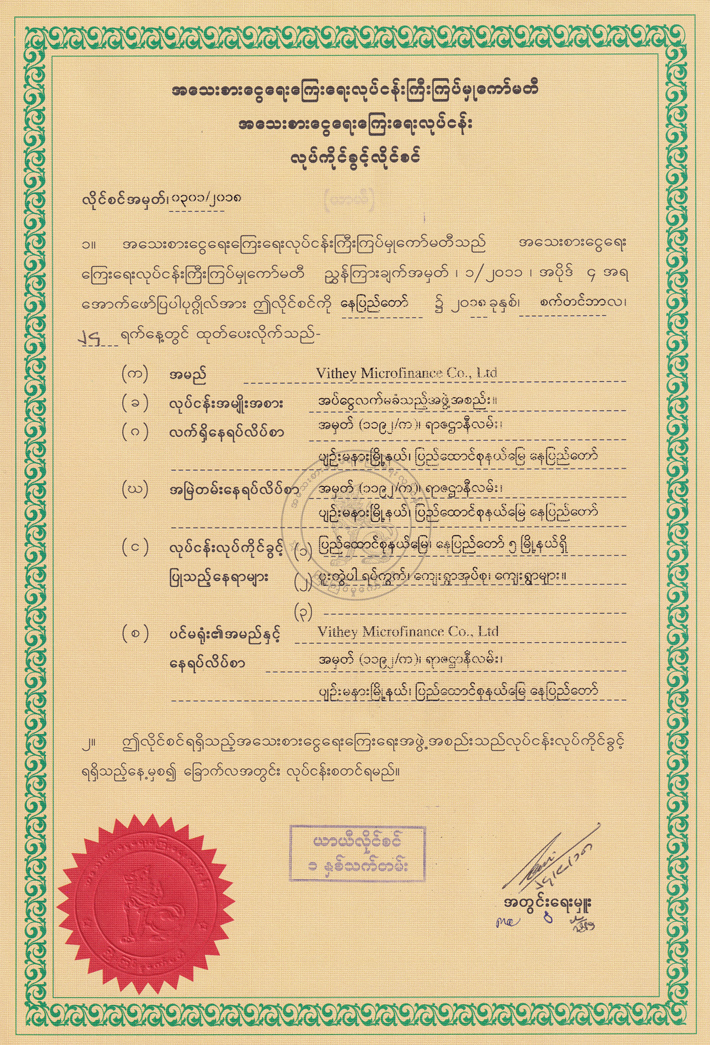 အသေးစားငွေရေးကြေးရေးလုပ်ငန်းကြီးကြပ်မှုကော်မတီ
အသေးစားငွေရေးကြေးရေးလုပ်ငန်း
လုပ်ကိုင်ခွင့်လိုင်စင်
လိုင်စင်အမှတ်၊ ၀၃၀၁/၂၀၁၈
(ယာယီ)
၁။ အသေးစားငွေရေးကြေးရေးလုပ်ငန်းကြီးကြပ်မှုကော်မတီသည် အသေးစားငွေရေး
ကြေးရေးလုပ်ငန်းကြီးကြပ်မှုကော်မတီ ညွှန်ကြားချက်အမှတ် ၊ ၁/၂၀၁၁ ၊ အပိုဒ် ၄ အရ
အောက်ဖော်ပြပါပုဂ္ဂိုလ်အား ဤလိုင်စင်ကို နေပြည်တော် ၌ ၂၀၁၈ ခုနှစ်၊ စက်တင်ဘာလ၊
၂၄ ရက်နေ့တွင် ထုတ်ပေးလိုက်သည်-
(က) အမည် Vithey Microfinance Co., Ltd
(ခ) လုပ်ငန်းအမျိုးအစား အပ်ငွေလက်မခံသည့်အဖွဲ့အစည်း။
(ဂ) လက်ရှိနေရပ်လိပ်စာ အမှတ် (၁၁၉၂/က)၊ ရာဇဌာနီလမ်း၊
ပျဉ်းမနားမြို့နယ်၊ ပြည်ထောင်စုနယ်မြေ နေပြည်တော်
(ဃ) အမြဲတမ်းနေရပ်လိပ်စာ အမှတ် (၁၁၉၂/က)၊ ရာဇဌာနီလမ်း၊
ပျဉ်းမနားမြို့နယ်၊ ပြည်ထောင်စုနယ်မြေ နေပြည်တော်
(င) လုပ်ငန်းလုပ်ကိုင်ခွင့် (၁) ပြည်ထောင်စုနယ်မြေ၊ နေပြည်တော် ၅ မြို့နယ်ရှိ
ပြုသည့်နေရာများ (၂) ပူးတွဲပါ ရပ်ကွက်၊ ကျေးရွာအုပ်စု၊ ကျေးရွာများ။
(၃)
(စ) ပင်မရုံး၏အမည်နှင့် Vithey Microfinance Co., Ltd
နေရပ်လိပ်စာ အမှတ် (၁၁၉၂/က)၊ ရာဇဌာနီလမ်း၊
ပျဉ်းမနားမြို့နယ်၊ ပြည်ထောင်စုနယ်မြေ နေပြည်တော်
၂။ ဤလိုင်စင်ရရှိသည့်အသေးစားငွေရေးကြေးရေးအဖွဲ့အစည်းသည်လုပ်ငန်းလုပ်ကိုင်ခွင့်
ရရှိသည့်နေ့မှစ၍ ခြောက်လအတွင်း လုပ်ငန်းစတင်ရမည်။
ယာယီလိုင်စင်
၁ နှစ်သက်တမ်း
အတွင်းရေးမှူး